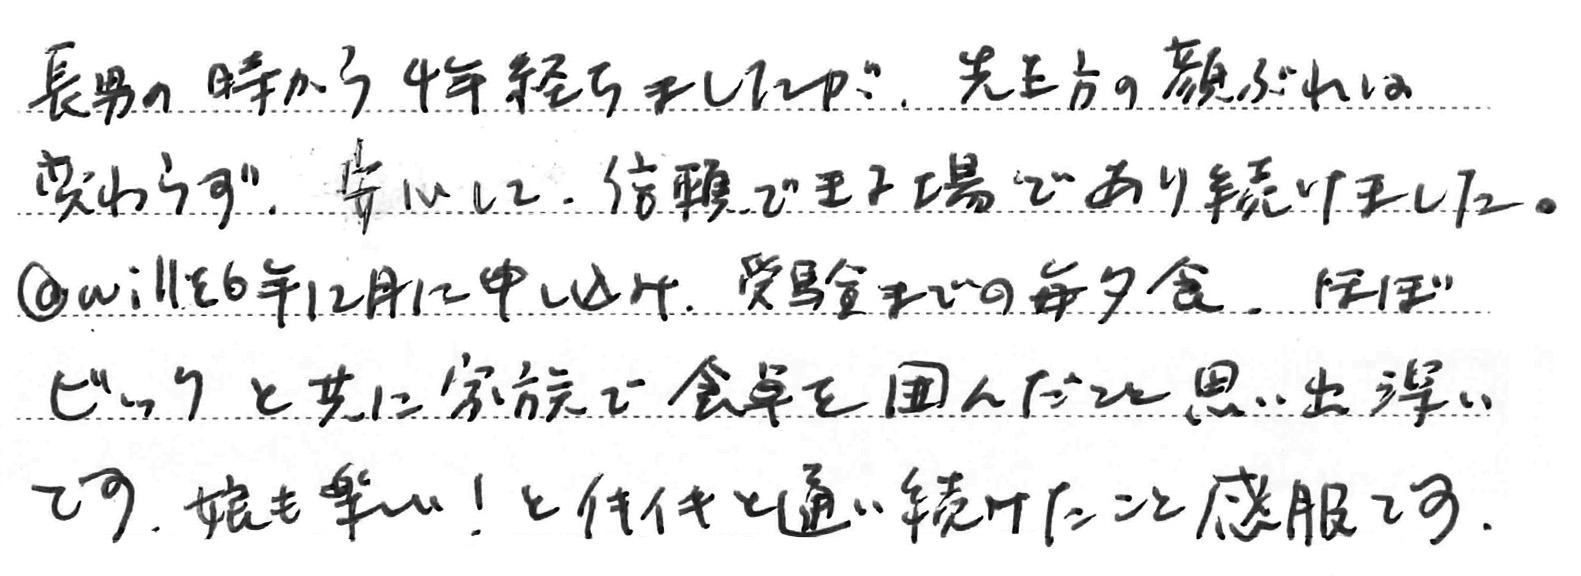 長男の時から4年経ちましたが、先生方の顔ぶれは
変わらず、安心して、信頼できる場であり続けました。
@willを6年12月に申し込み、受験までの毎夕食、ほぼ
ビックと共に家族で食卓を囲んだこと思い出深い
です。娘も楽しい！と伎伎と通い続けたこと感服です。